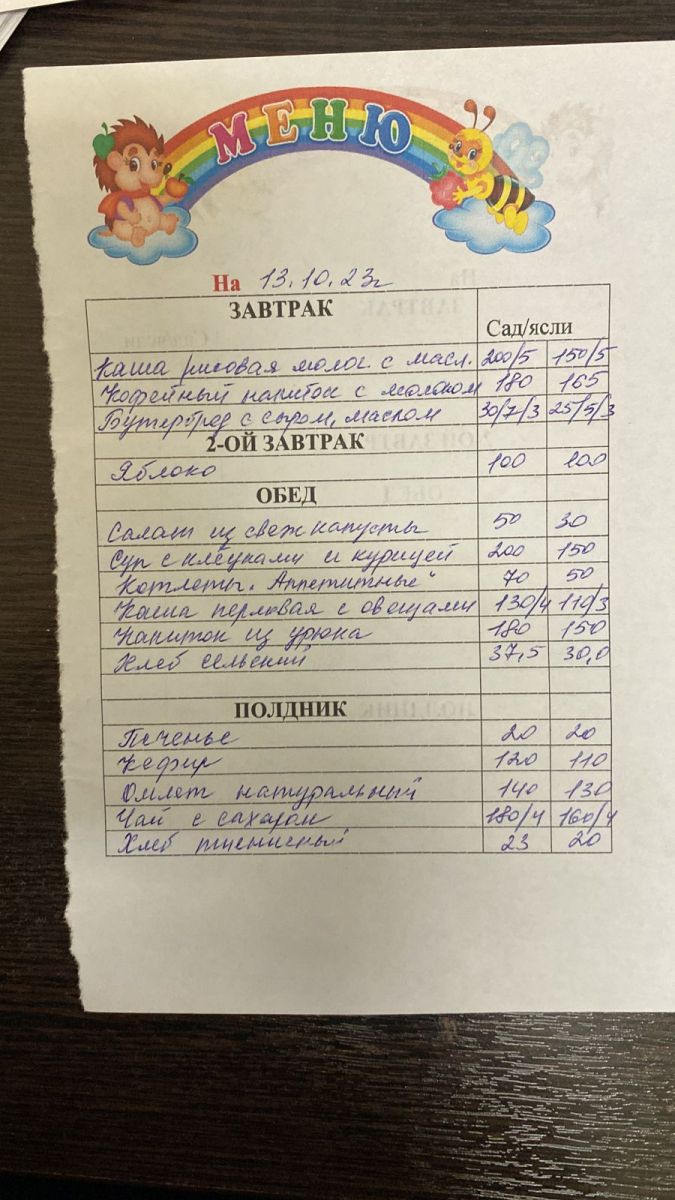 МЕНЮ
На 13.10.23г
ЗАВТРАК Сад/ясли
Каша рисовая молоч. с масл. 200/5 150/5
Кофейный напиток с молоком 180 165
Бутерброд с сыром, маслом 30/7/3 25/5/3
2-ОЙ ЗАВТРАК
Яблоко 100 100
ОБЕД
Салат из свеж капусты 50 30
Суп с клёцками и курицей 200 150
Котлеты „Аппетитные" 70 50
Каша перловая с овощами 130/4 110/3
Напиток из урюка 180 150
Хлеб сельский 37,5 30,0
ПОЛДНИК
Печенье 20 20
Кефир 120 110
Омлет натуральный 140 130
Чай с сахаром 180/4 160/4
Хлеб пшеничный 23 20